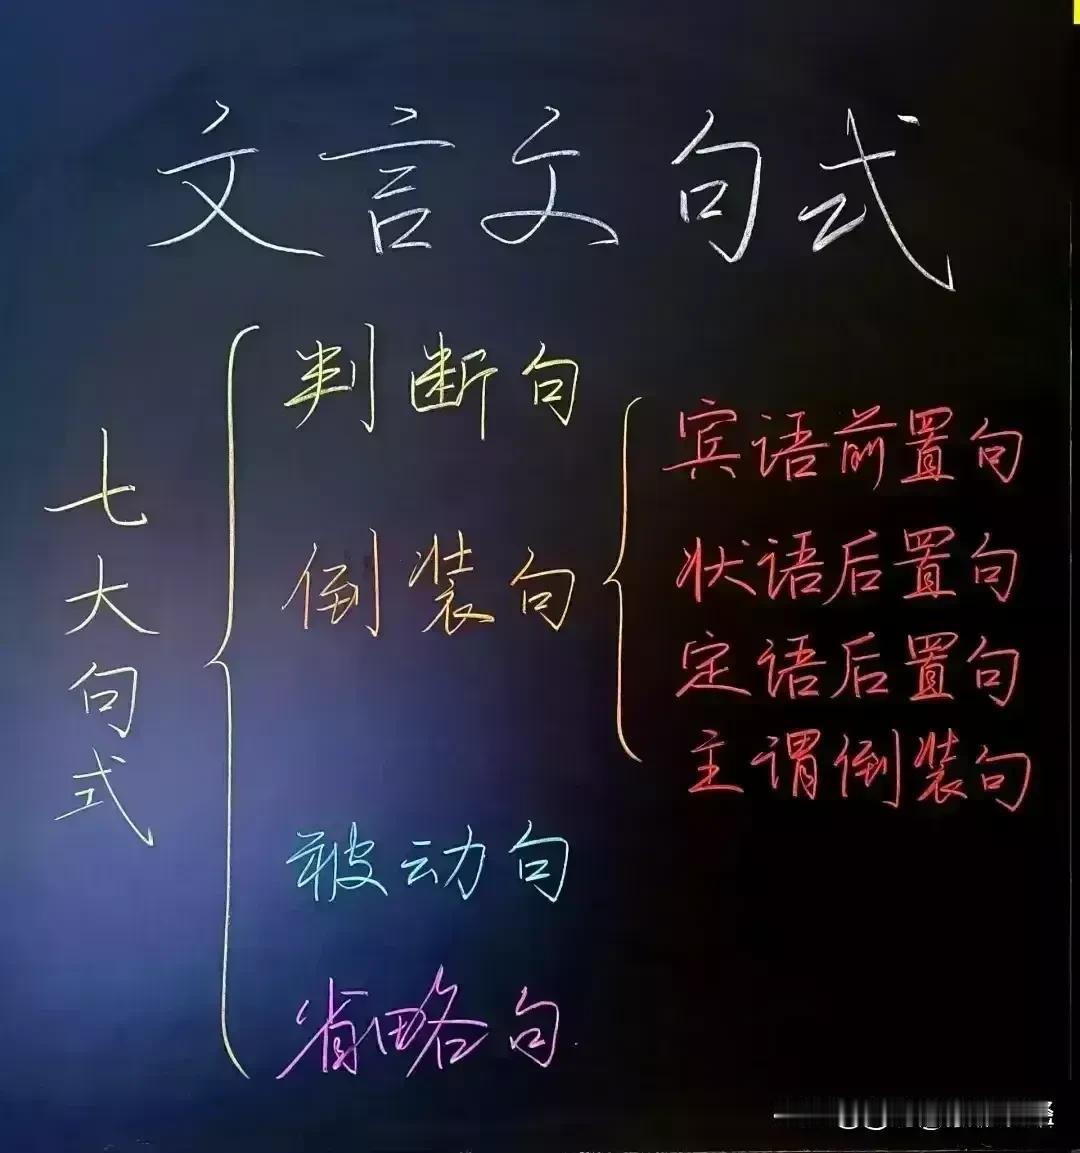 文言文句式
七大句式
判断句
倒装句
宾语前置句
状语后置句
定语后置句
主谓倒装句
被动句
省略句